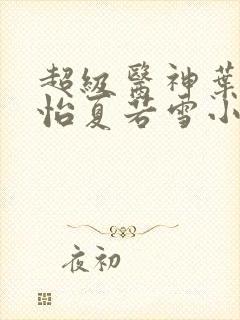 超級醫神葉
怡夏若雪小
夜初